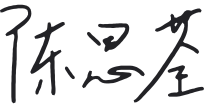 陈思荃